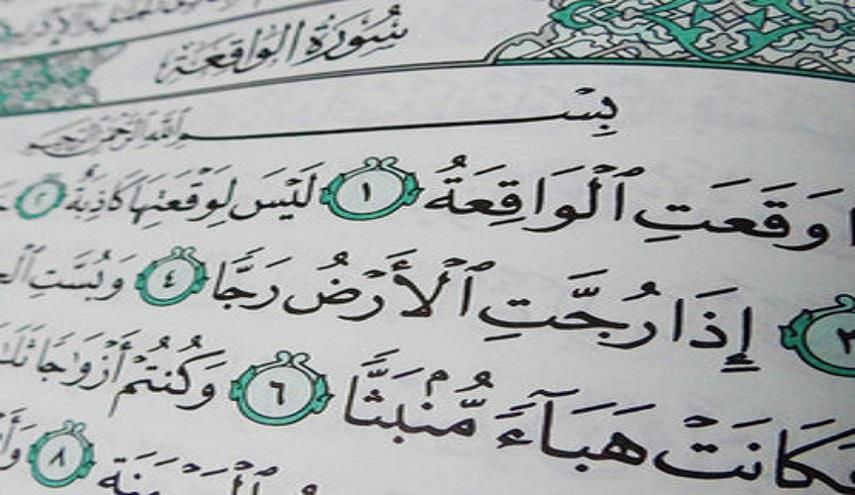 سُورَةُ الْوَاقِعَةِ
بِسْمِ اللَّهِ الرَّحْمَٰنِ الرَّحِيمِ
وَقَعَتِ ٱلْوَاقِعَةُ ١ لَيْسَ لِوَقْعَتِهَا كَاذِبَةٌ ٢
٣ إِذَا رُجَّتِ ٱلْأَرْضُ رَجًّا ٤ وَبُسَّتِ
فَكَانَتْ هَبَآءً مُّنۢبَثًّا ٦ وَكُنتُمْ أَزْوَٰجًا
٨